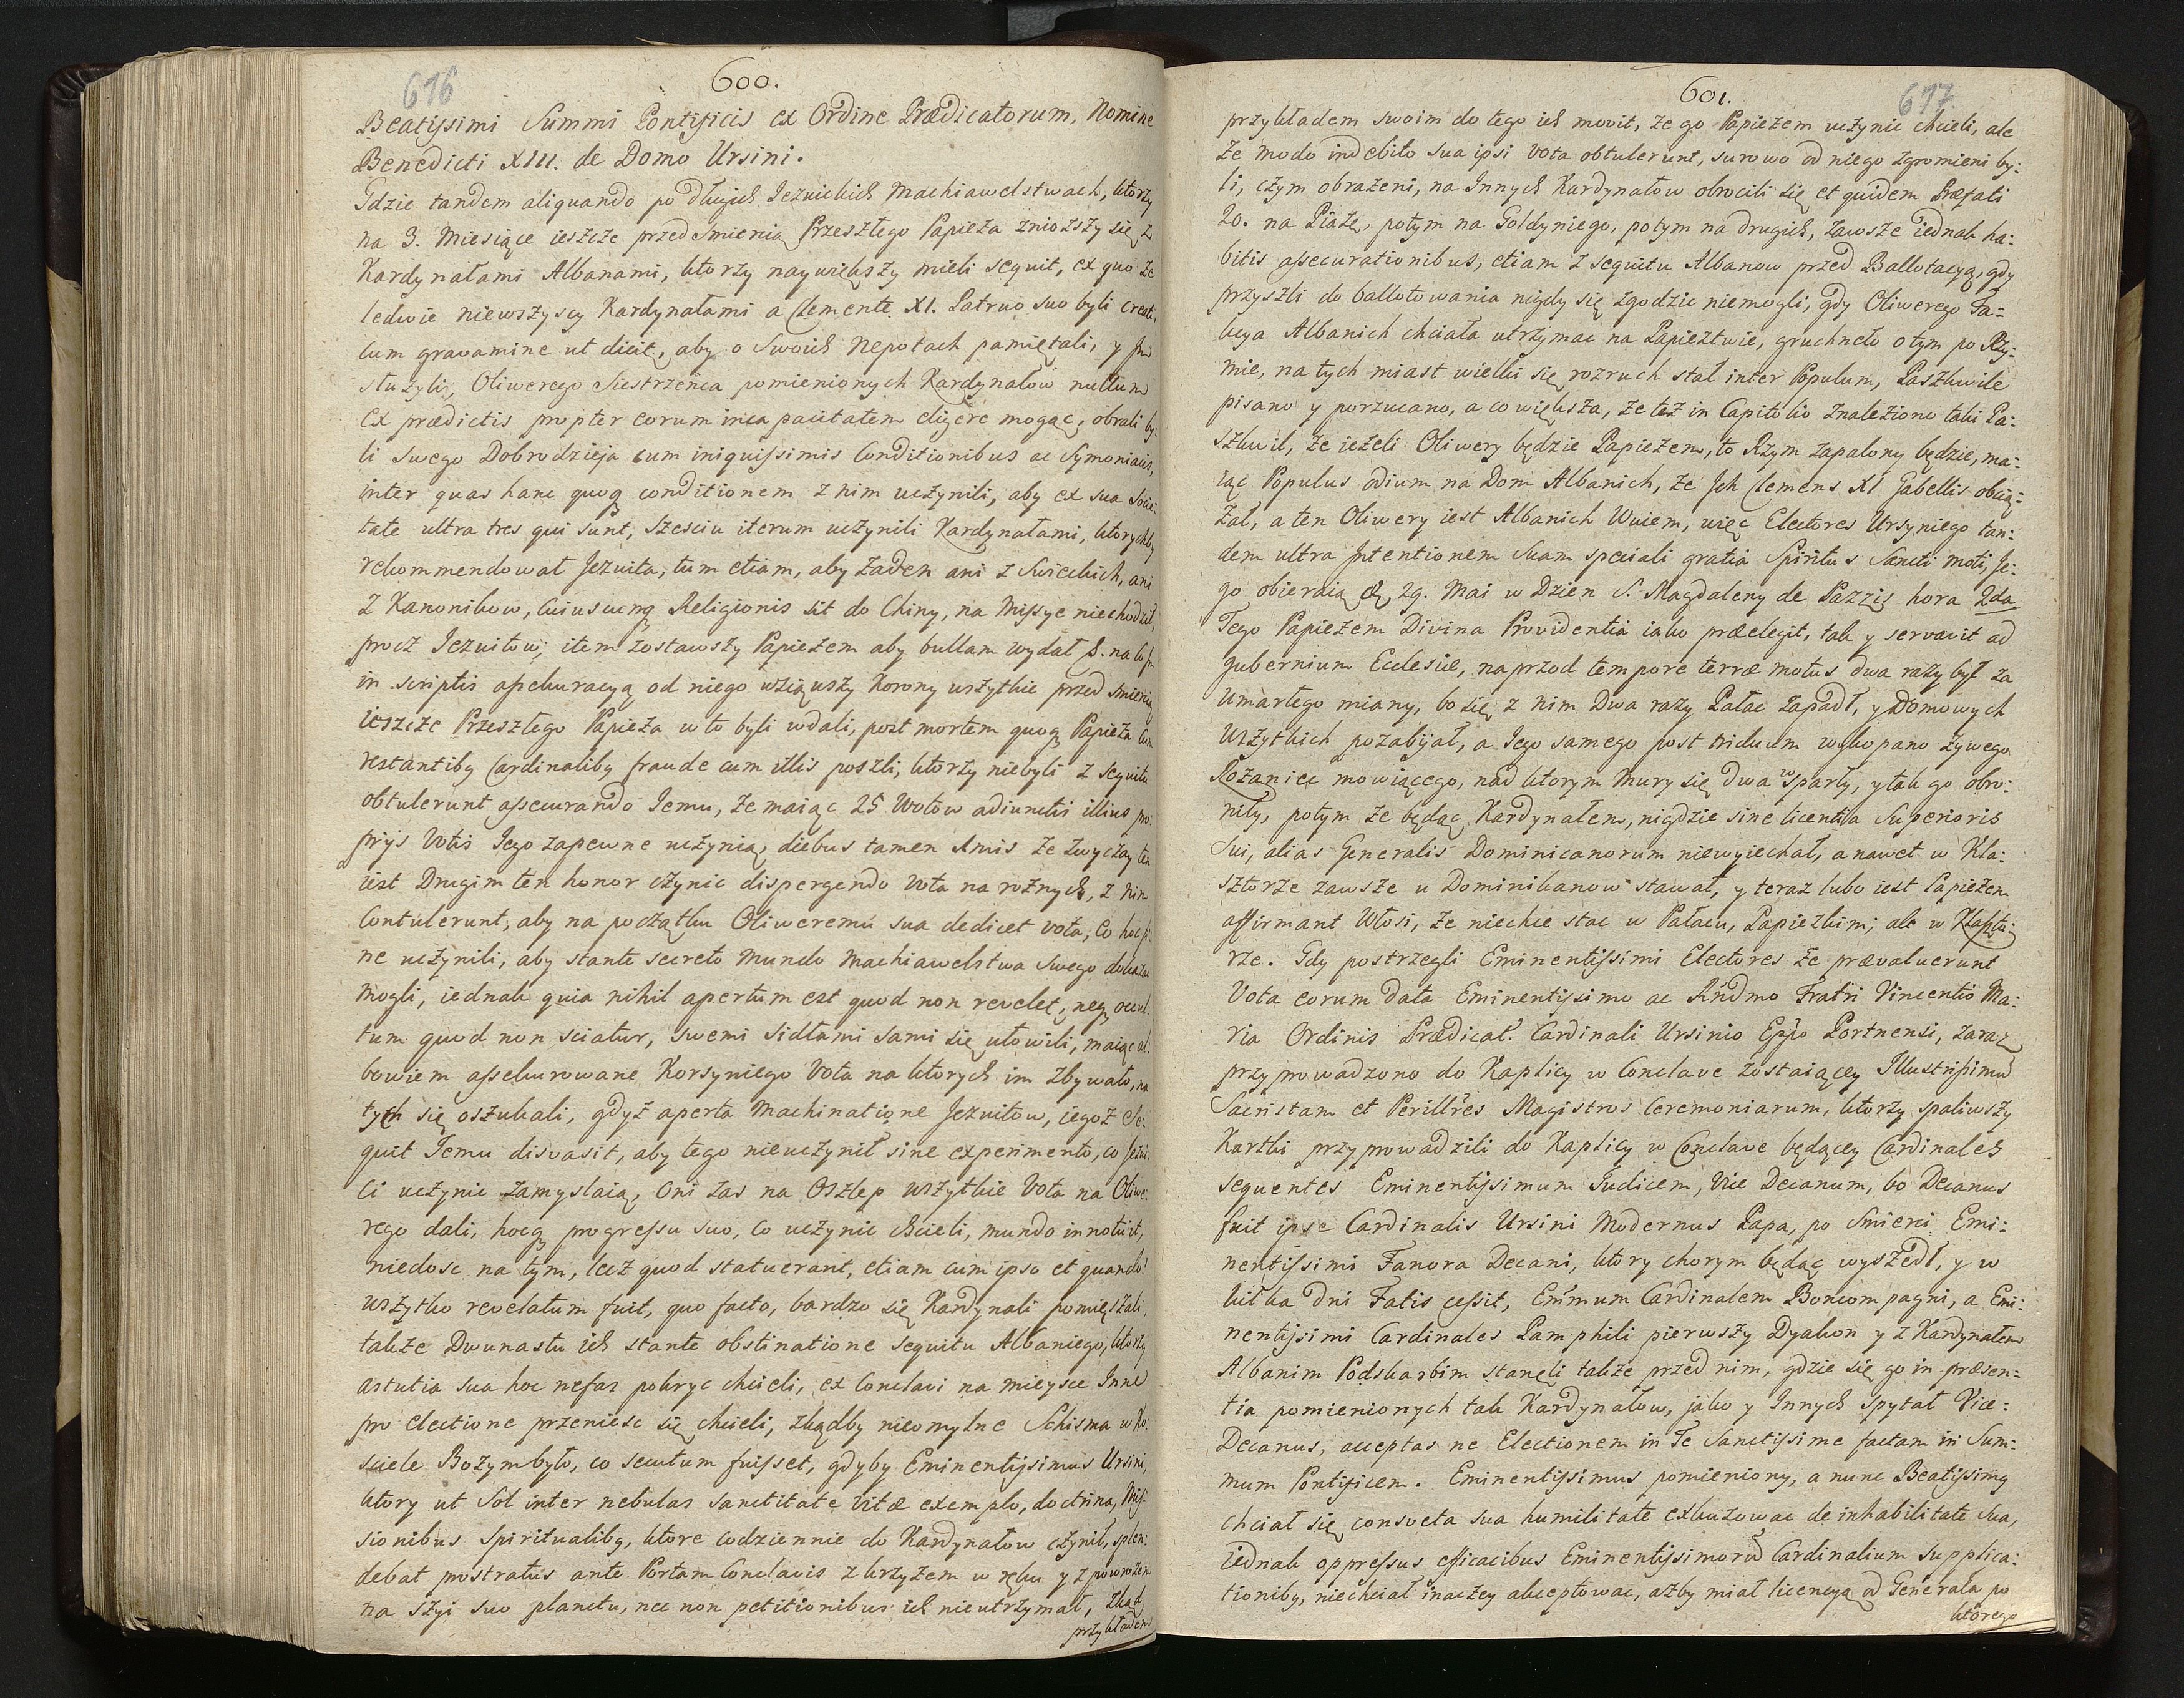 616
600.
Beatissimi Summi Pontificis ex Ordine Prædicatorum, Nomine
Benedicti XIII. de Domo Ursini.
Gdzie tandem aliquando po długich Jezuickich Machiawelstwach, ktorzy
na 3. Miesiące ieszcze przed Smiercią Przeszłego Papieża zniozszy się z
Kardynałami Albanami, ktorzy naywiększy mieli sequit, ex quo że
ledwie niewszyscy Kardynałami a Clemente XI. Patruo suo byli creati,
cum gravamine ut dicit, aby o Swoich Nepotach pamiętali, y Im
służyli, Oliwerego Siestrzenca pomienionych Kardynałow nullum
ex prædictis propter eorum incapacitatem eligere mogąc, obrali by-
li Swego Dobrodzieja cum iniquissimis Conditionibus ac Symoniacis,
inter quas hanc quoq conditionem z nim uczynili, aby ex sua Socie-
tate ultra tres qui sunt, Szesciu iterum uczynili Kardynałami, ktorychby
rekommendował Jezuita, tum etiam, aby żaden ani z Swieckich, ani
z Kanonikow, cuiuscunq Religionis sit do Chiny, na Missye niechodził,
procz Jezuitow; item zostawszy Papieżem aby bullam wydał
in scriptis assekuracyą od niego wziąwszy Korony wszytkie przed smiercią
ieszcze Przeszłego Papieża w to byli wdali, post mortem quoq Papieża cum
restantibq Cardinalibq fraude cum illis poszli, ktorzy niebyli z sequitu
obtulerunt assecurando Jemu, że maiąc 25 Wotow adiunctis illius pro-
prijs Votis Jego zapewne uczynią, diebus tamen Amis że zwyczay ten
iest Drugim ten honor czynic dispergendo Vota na rożnych, z nim
Contulerunt, aby na początku Oliweremu sua dedicet vota, Co hoc fi-
ne uczynili, aby stante secreto Mundo Machiawelstwa Swego dokazac
Mogli, iednak quia nihil apertum est quod non revelet, neq occul-
tum quod non sciatur, swemi sidłami sami się ułowili, maiąc al-
bowiem assekurowane Korsyniego Vota na ktorych im zbywało, na
tych się oszukali, gdyż aperta Machinatione Jezuitow, iegoż Se-
quit Jemu disvasit, aby tego nieuczynił sine experimento, co Jezui-
ci uczynic zamyslaią, Oni zas na Oszlep wszytkie Vota na Oliwe-
rego dali, hocq progressu suo, Co uczynic chcieli, mundo innotuit,
niedosc na tym, lecz quod statuerant, etiam cum ipso et quando!
wszytko revelatum fuit, quo facto, bardzo się Kardynali pomięszali,
także Dwunastu ich stante obstinatione sequitu Albaniego, ktorzy
astutia sua hoc nefas pokryc chcieli, ex Conclavi na mieysce Inne
pro electione przeniesc się chcieli, zkądby nieomylne Schisma w Ko-
sciele Bożym było, co secutum fuisset, gdyby Eminentissimus Ursini,
ktory ut Sol inter nebulas sanctitate vitæ exemplo, doctrina, Mis-
sionibus spiritualibq, ktore codziennie do Kardynałow czynił, splen-
debat prostratus ante Portam Conclavis z krzyżem w ręku y z powrozem
na szyi suo planctu, nec non petitionibus ich nieutrzymał, zkąd
przykładem
601.
617
przykładem swoim do tego ich movit, że go Papieżem uczynic chcieli, ale
że modo indebito sua ipsi vota obtulerunt, surowo od niego zgromieni by:
li, czym obrażeni, na Innych Kardynałow obrocili się et quidem Præfati
20. na Piazę, potym na Goldyniego, potym na drugich, zawsze iednak ha:
bitis assecurationibus, etiam z sequitu Albanow przed Ballotacyą, gdy
przyszli do ballotowania nigdy się zgodzic niemogli, gdy Oliwerego Fa=
kcya Albanich chciała utrzymac na Papieztwie, gruchneło o tym po Rzy:
mie, na tych miast wielki się rozruch stał inter Populum, Paszkwile
pisano y porzucano, a co większa, że też in Capitolio znaleziono taki Pa:
szkwil, że ieżeli Oliwery będzie Papieżem, to Rzym zapalony będzie, ma:
iąc Populus odium na Dom Albanich, że Jch Clemens XI Gabellis obcią:
żał, a ten Oliwery iest Albanich Wuiem, więc Electores Ursyniego tan:
dem ultra Intentionem Suam speciali gratia Spiritus Sancti moti, Je:
go obieraią, 29. Mai w Dzien S. Magdaleny de Pazzis hora 2da
Tego Papieżem Divina Providentia iako præelegit, tak y servavit ad
gubernium Ecclesiæ, naprzod tempore terræ motus dwa razy był za
umarłego miany, bo się z nim Dwa razy Pałac zapadł, y Domowych
wszytkich pozabijał, a Jego samego post triduum wykopano żywego
Rożaniec mowiącego, nad ktorym mury się dwa wsparły, y tak go obro:
niły, potym że będąc Kardynałem, nigdzie sine licentia Superioris
Sui, alias Generalis Dominicanorum niewyiechał, a nawet w Kla:
sztorze zawsze u Dominikanow stawał, y teraz lubo iest Papieżem
affirmant Włosi, że niechce stac w Pałacu, Papiezkim, ale w Klaszto:
rze. Gdy postrzegli Eminentissimi Electores że prævaluerunt
Vota eorum data Eminentissimo ac Rńdmo Fratri Vincentio Ma:
ria Ordinis Prædicat. Cardinali Ursinio Eppo Portnensi, zaraz
przyprowadzono do Kaplicy w Conclave zostaiącey Illustrissimum
Sacristam et Perillres Magistros Ceremoniarum, ktorzy spaliwszy
Kartki przyprowadzili do Kaplicy w Conclave będącey Cardinales
sequentes Eminentissimum Judicem, Vice Decanum, bo Decanus
fuit ipse Cardinalis Ursini Modernus Papa, po Smierci Emi:
nentissimi Tanora Decani, ktory chorym będąc wyszedł, y w
kilka dni Fatis cessit, Em̃mum Cardinalem Boncompagni, a Emi:
nentissimi Cardinales Pamphili pierwszy Dyakon y z Kardynałem
Albanim Podskarbim staneli także przed nim, gdzie się go in præsen:
tia pomienionych tak Kardynałow, jako y Innych spytał Vice:
Decanus, acceptas ne Electionem in Te Sanctissime factam in Sum:
mum Pontificem. Eminentissimus pomieniony, a nunc Beatissimq
chciał się consveta sua humilitate exkuzowac de inhabilitate Sua,
iednak oppressus efficacibus Eminentissimorũ Cardinalium supplica:
tionibq, niechciał inaczey akceptowac, ażby miał licencyą od Generała po
ktorego